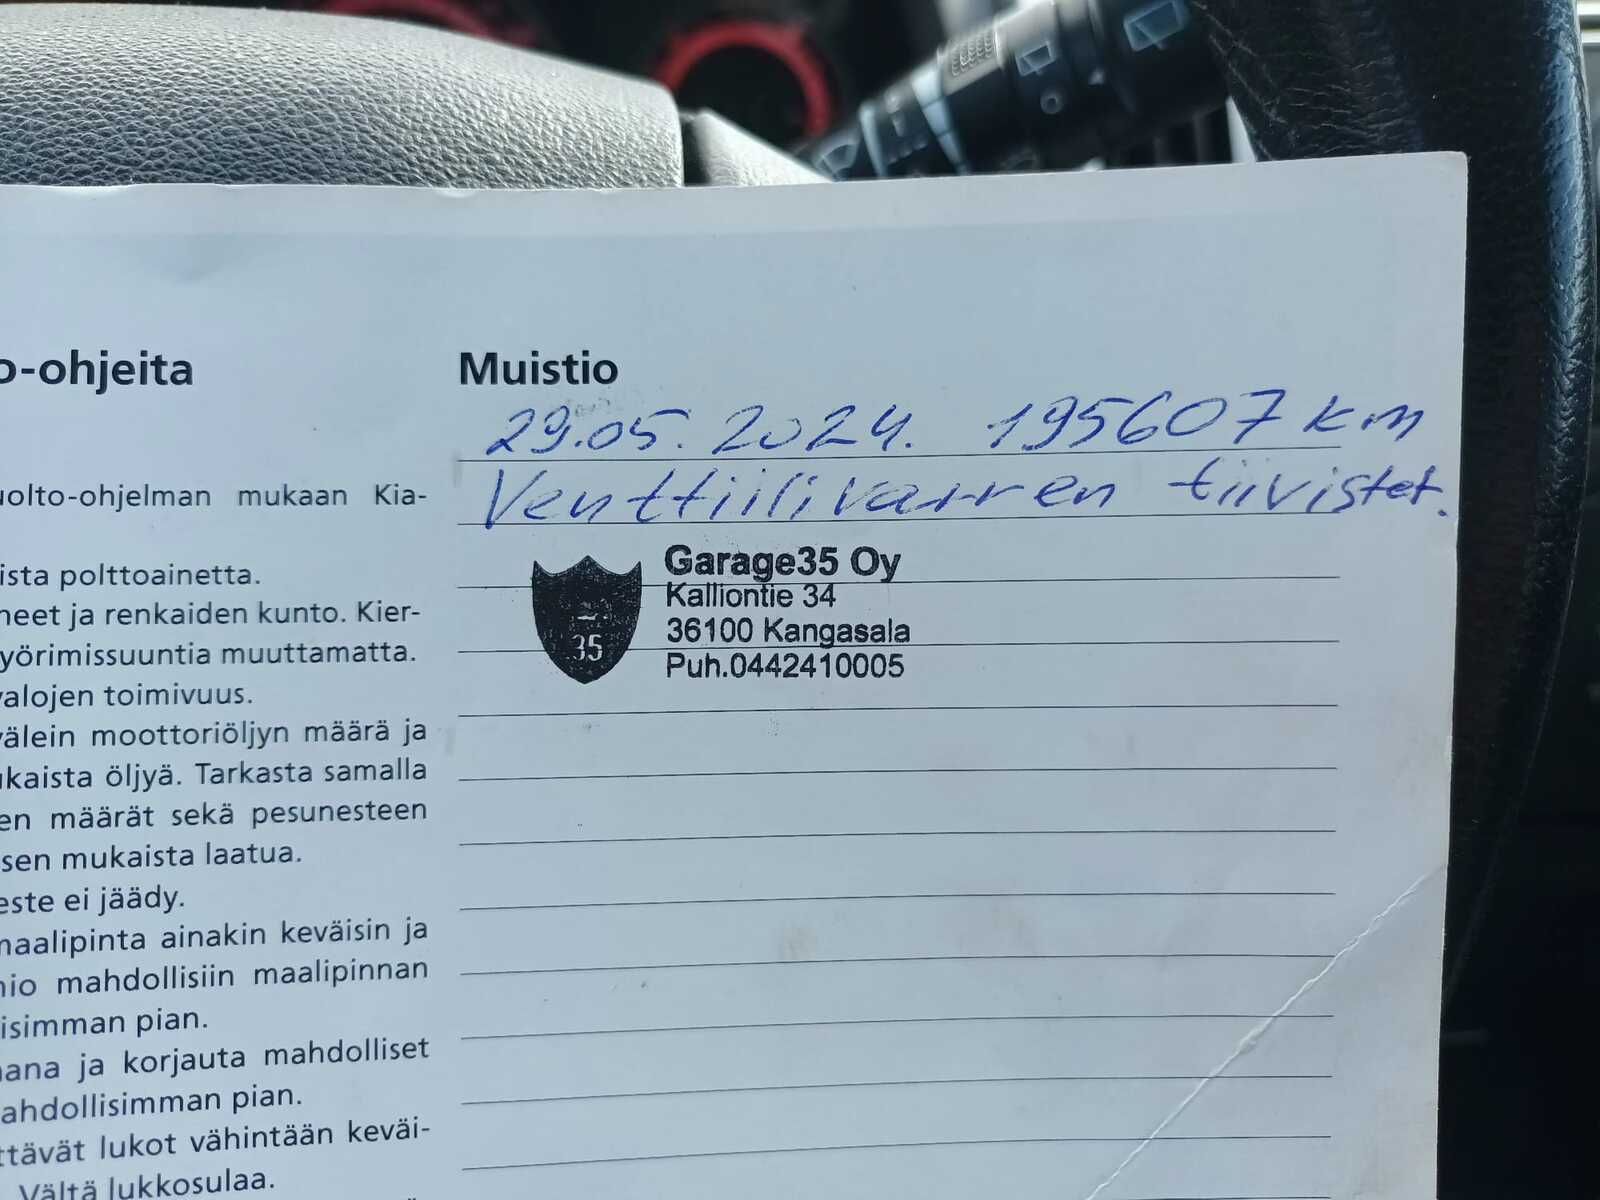 o-ohjeita
uolto-ohjelman mukaan Kia-
ista polttoainetta.
neet ja renkaiden kunto. Kier-
yörimissuuntia muuttamatta.
valojen toimivuus.
välein moottoriöljyn määrä ja
ukaista öljyä. Tarkasta samalla
en määrät sekä pesunesteen
sen mukaista laatua.
este ei jäädy.
maalipinta ainakin keväisin ja
nio mahdollisiin maalipinnan
isimman pian.
ana ja korjauta mahdolliset
ahdollisimman pian.
ttävät lukot vähintään keväi-
. Vältä lukkosulaa.
Muistio
29.05.2024. 195607 km
Venttiilivarren tiivistet.
35
Garage35 Oy
Kalliontie 34
36100 Kangasala
Puh.0442410005